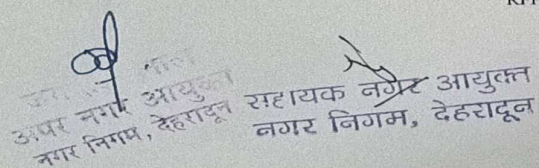 अपर नगर आयुक्त
नगर निगम, देहरादून
सहायक नगर आयुक्त
नगर निगम, देहरादून